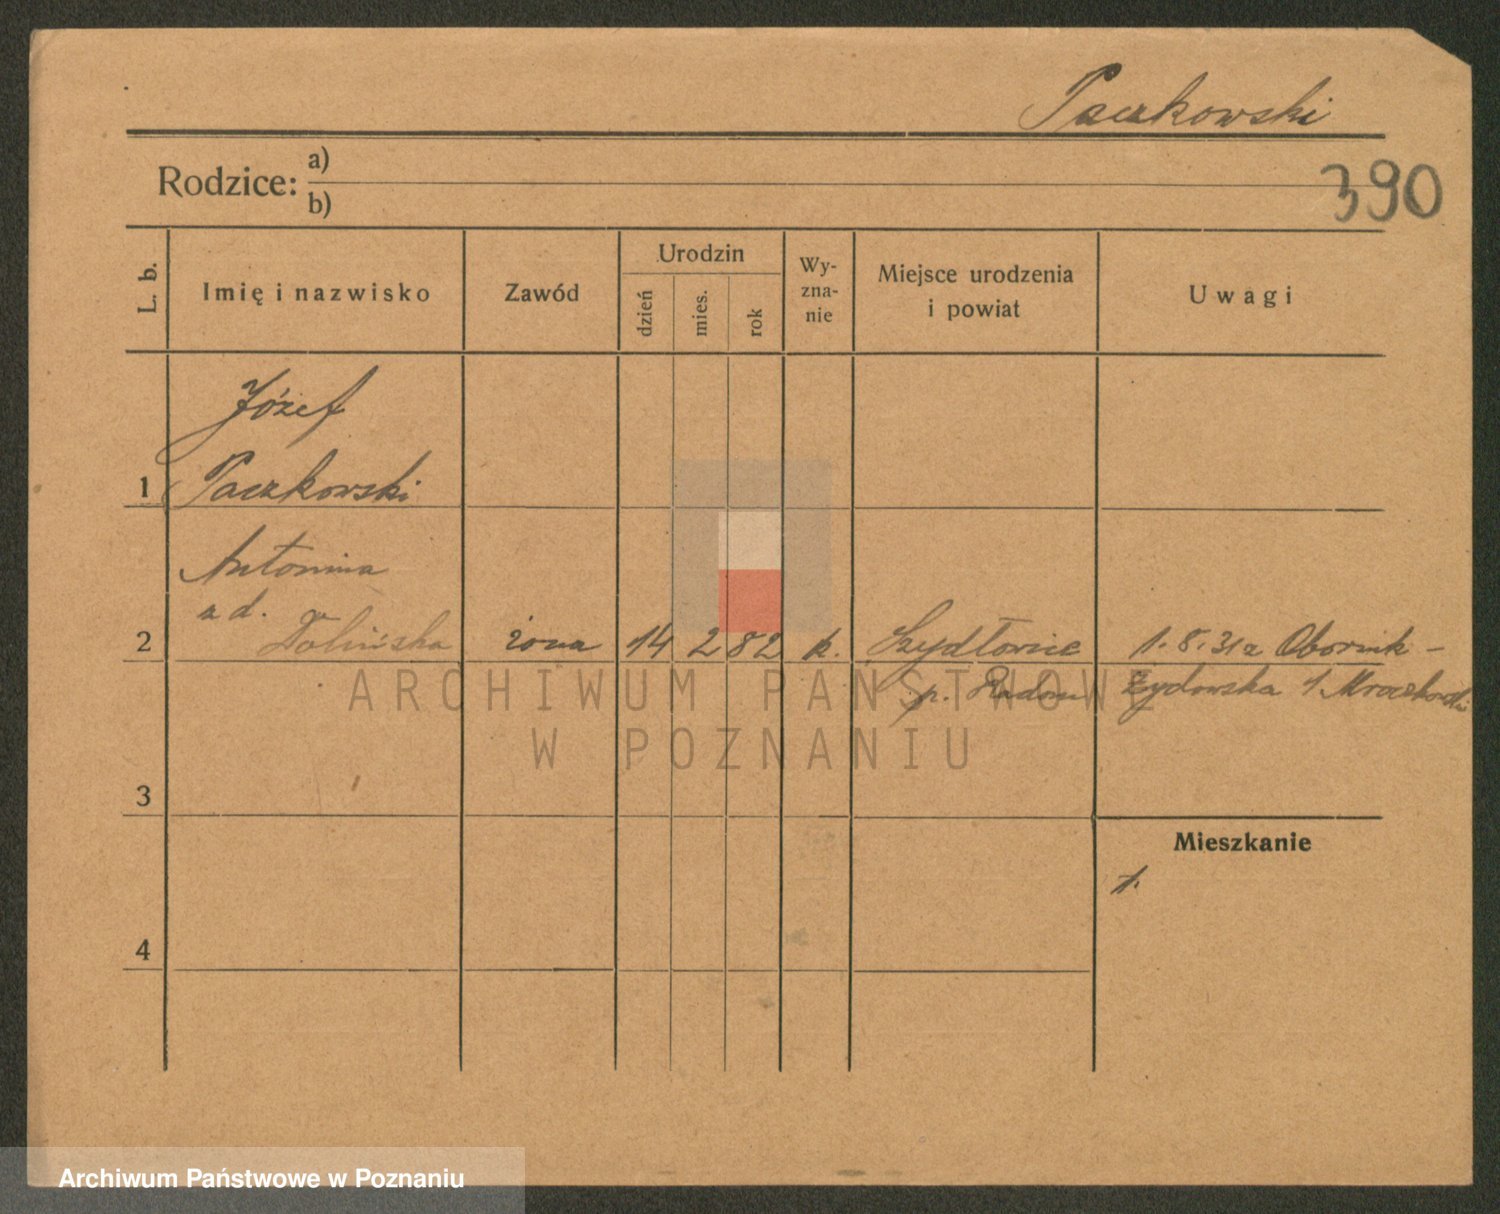 Paczkowski
Rodzice: a)
b)
390
L. b.
Imię i nazwisko
Zawód
Urodzin
dzień
mies.
rok
Wy-
zna-
nie
Miejsce urodzenia
i powiat
Uwagi
Józef
1 Paczkowski
Antonina
z d.
2 Dolińska żona 14 2 82 k. Szydłowiec 1.8.31 z Obornik -
p. Radom Żydowska 1 Mroczkowski
3
Mieszkanie
1.
4
ARCHIWUM PAŃSTWOWE
W POZNANIU
Archiwum Państwowe w Poznaniu